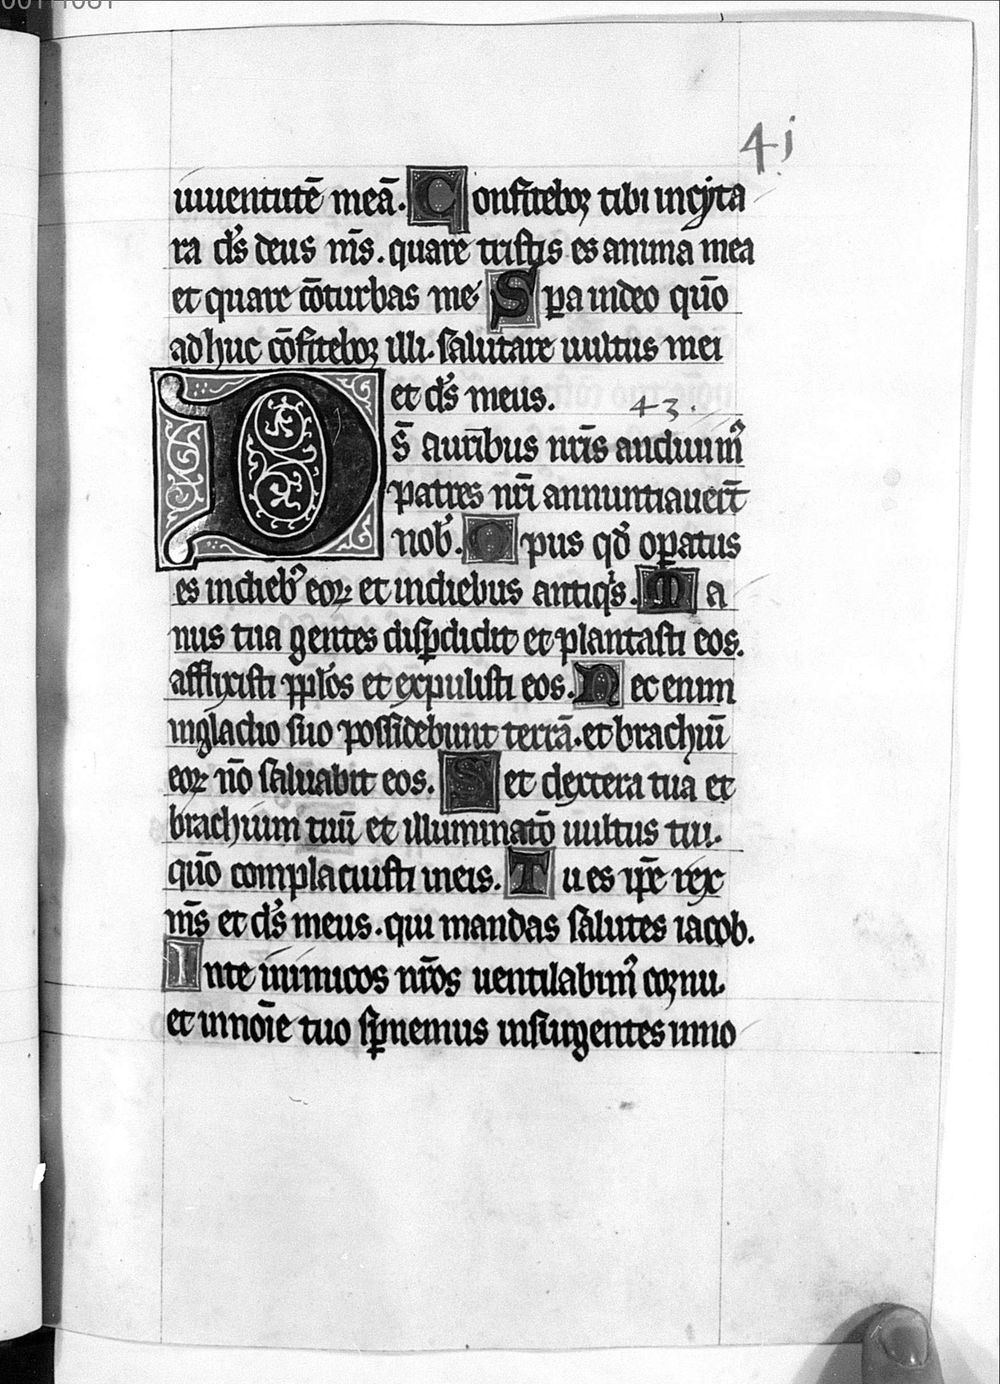 41
iuuentutē meā. Confitebor tibi incyta
ra ds̄ deus ms̄. quare tristis es anima mea
et quare cōturbas me. Spa indeo qm̄o
adhuc cōfitebor illi. salutare uultus mei
et ds̄ meus.
43.
Ds̄ auribus nr̄is audiuim᾿
patres nr̄i annuntiauer̄t
nob᾿. Opus qd̄ oꝑatus
es indieb᾿ eoꝝ et indiebus antiqͥs. Ma
nus tua gentes disꝑdidit et plantasti eos.
afflixisti pplōs et expulisti eos. Nec enim
ingladio suo possidebunt terrā. et brachiū
eoꝝ nō saluabit eos. Set dextera tua et
brachium tuū et illuminatō uultus tui.
qm̄o complacuisti ineis. Tu es ip̄e rex
ms̄ et ds̄ meus. qui mandas salutes iacob.
Inte inimicos nr̄os uentilabim᾿ cornu.
et innoīe tuo sꝑnemus insurgentes inno